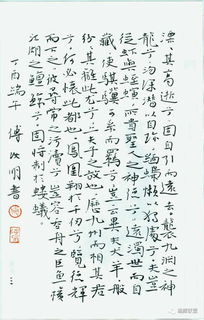 漂漂其高逝兮固自引而遠去襲九淵之神
龍兮沕深潛以自珍偭蟂獺以隱處兮夫豈
從蝦與蛭螾所貴聖人之神德兮遠濁世而自
藏使騏驥可系而羈兮豈云異夫犬羊般
紛紛其離此尤兮亦夫子之故也歷九州而相其君
兮何必懷此都也鳳凰翔于千仞兮覽德輝
而下之彼尋常之污瀆兮豈容吞舟之巨魚橫
江湖之鱣鯨兮固將制于螻蟻
丁酉端午 傅 明書